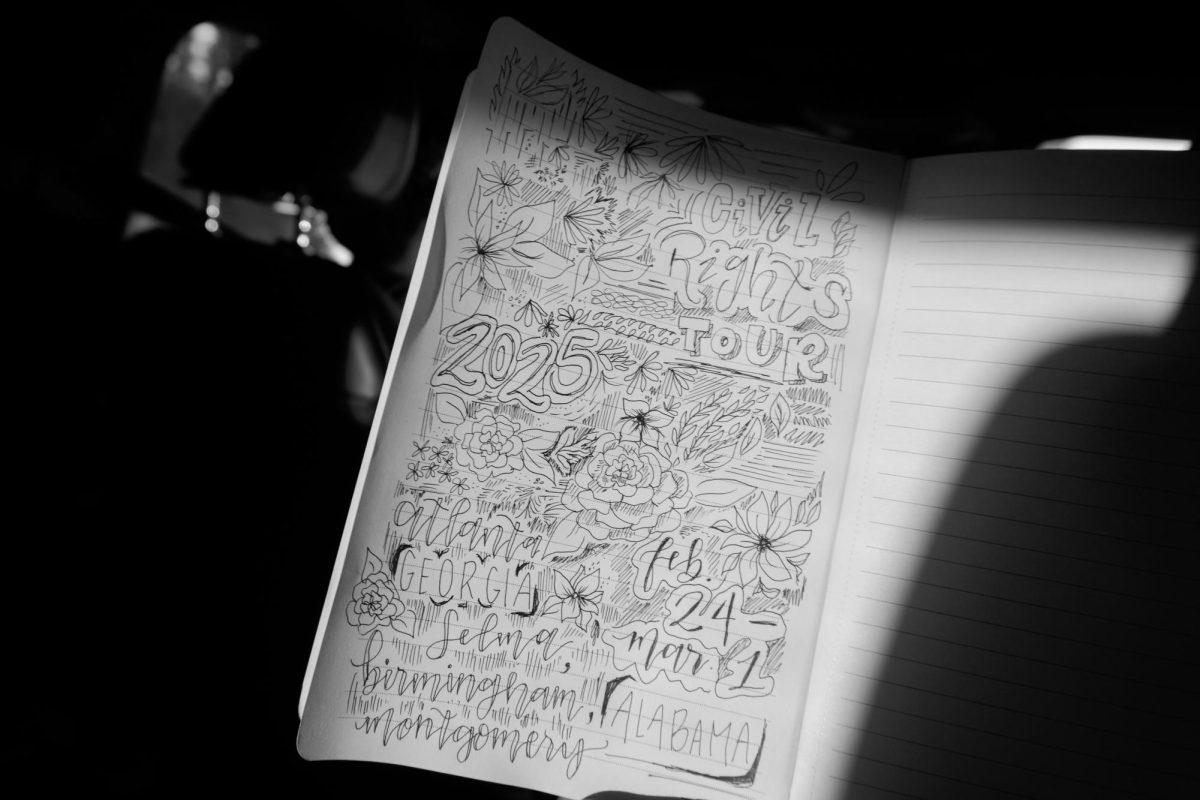 CiViL
Rights
TOUR
2025
atlanta
GEORGIA
feb.
24 -
mar. 1
Selma,
birmingham,
montgomery
ALABAMA